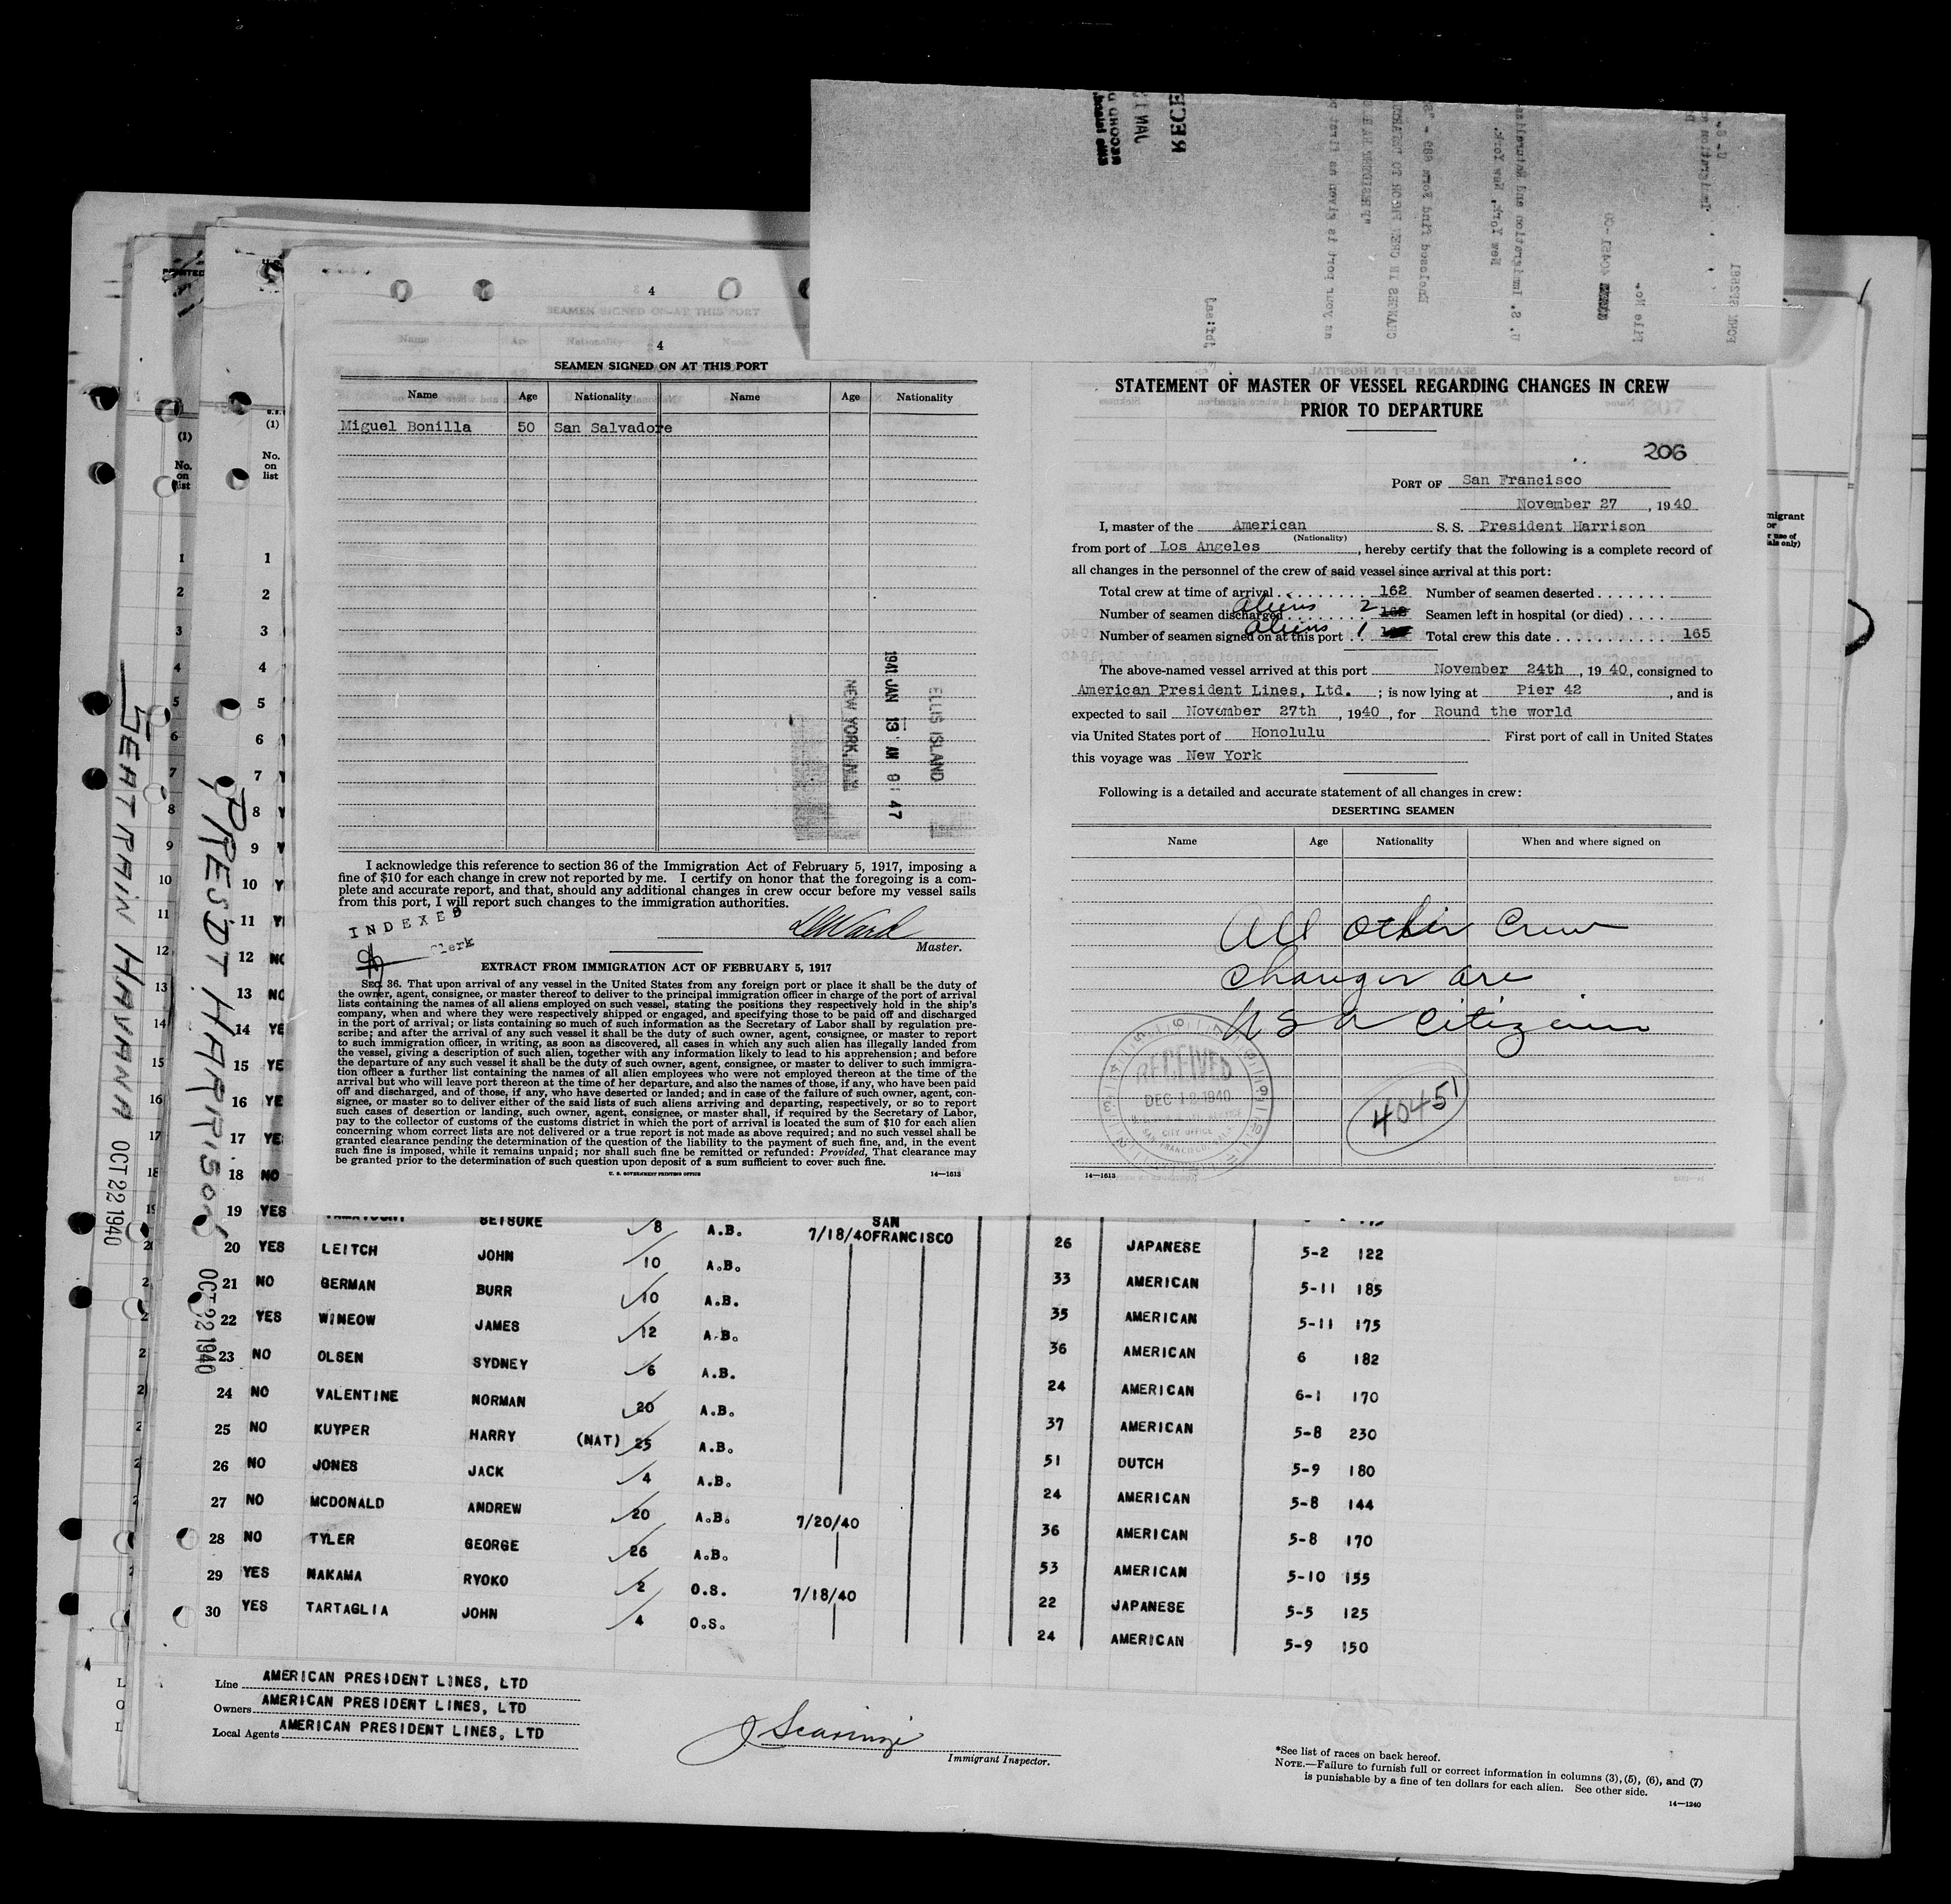 4
4
SEAMEN SIGNED ON AT THIS PORT
Name Age Nationality Name Age Nationality
Miguel Bonilla 50 San Salvadore
ELLIS ISLAND
1941 JAN 13 AM 9:47
NEW YORK, N.Y.
I acknowledge this reference to section 36 of the Immigration Act of February 5, 1917, imposing a
fine of $10 for each change in crew not reported by me. I certify on honor that the foregoing is a com-
plete and accurate report, and that, should any additional changes in crew occur before my vessel sails
from this port, I will report such changes to the immigration authorities.
INDEXED
Clerk
Master.
EXTRACT FROM IMMIGRATION ACT OF FEBRUARY 5, 1917
SEC. 36. That upon arrival of any vessel in the United States from any foreign port or place it shall be the duty of
the owner, agent, consignee, or master thereof to deliver to the principal immigration officer in charge of the port of arrival
lists containing the names of all aliens employed on such vessel, stating the positions they respectively hold in the ship's
company, when and where they were respectively shipped or engaged, and specifying those to be paid off and discharged
in the port of arrival; or lists containing so much of such information as the Secretary of Labor shall by regulation pre-
scribe; and after the arrival of any such vessel it shall be the duty of such owner, agent, consignee, or master to report
to such immigration officer, in writing, as soon as discovered, all cases in which any such alien has illegally landed from
the vessel, giving a description of such alien, together with any information likely to lead to his apprehension; and before
the departure of any such vessel it shall be the duty of such owner, agent, consignee, or master to deliver to such immigra-
tion officer a further list containing the names of all alien employees who were not employed thereon at the time of the
arrival but who will leave port thereon at the time of her departure, and also the names of those, if any, who have been paid
off and discharged, and of those, if any, who have deserted or landed; and in case of the failure of such owner, agent, con-
signee, or master so to deliver either of the said lists of such aliens arriving and departing, respectively, or so to report
such cases of desertion or landing, such owner, agent, consignee, or master shall, if required by the Secretary of Labor,
pay to the collector of customs of the customs district in which the port of arrival is located the sum of $10 for each alien
concerning whom correct lists are not delivered or a true report is not made as above required; and no such vessel shall be
granted clearance pending the determination of the question of the liability to the payment of such fine, and, in the event
such fine is imposed, while it remains unpaid; nor shall such fine be remitted or refunded: Provided, That clearance may
be granted prior to the determination of such question upon deposit of a sum sufficient to cover such fine.
U. S. GOVERNMENT PRINTING OFFICE 14—1613
STATEMENT OF MASTER OF VESSEL REGARDING CHANGES IN CREW
PRIOR TO DEPARTURE
206
PORT OF San Francisco
November 27, 1940
I, master of the American S. S. President Harrison
(Nationality)
from port of Los Angeles, hereby certify that the following is a complete record of
all changes in the personnel of the crew of said vessel since arrival at this port:
Total crew at time of arrival 162 Number of seamen deserted
Number of seamen discharged aliens 2 Seamen left in hospital (or died)
Number of seamen signed on at this port aliens 1 Total crew this date 165
The above-named vessel arrived at this port November 24th, 1940, consigned to
American President Lines, Ltd. ; is now lying at Pier 42, and is
expected to sail November 27th, 1940, for Round the world
via United States port of Honolulu First port of call in United States
this voyage was New York
Following is a detailed and accurate statement of all changes in crew:
DESERTING SEAMEN
Name Age Nationality When and where signed on
All other Crew
changes are
USA Citizens
RECEIVED
DEC 18 1940
40451
14—1613
SEATRAIN HAVANA OCT 22 1940
PRESDT HARRISON OCT 22 1940
(1) (1)
No. on list No. on list
1 1
2 2
3 3
4 4
5 5
6 6
7 7
8 8
9 9
10 10
11 11
12 12
13 13
14 14 YE
15 15 YE
16 16 YE
17 17 YE
18 18 NO
19 YES SEISUKE 8 A.B. 7/18/40 SAN FRANCISCO
20 YES LEITCH JOHN 10 A.B. 26 JAPANESE 5-2 122
21 NO GERMAN BURR 10 A.B. 33 AMERICAN 5-11 185
22 YES WINEOW JAMES 12 A.B. 35 AMERICAN 5-11 175
23 NO OLSEN SYDNEY 6 A.B. 36 AMERICAN 6 182
24 NO VALENTINE NORMAN 20 A.B. 24 AMERICAN 6-1 170
25 NO KUYPER HARRY (NAT) 25 A.B. 37 AMERICAN 5-8 230
26 NO JONES JACK 4 A.B. 51 DUTCH 5-9 180
27 NO MCDONALD ANDREW 20 A.B. 7/20/40 24 AMERICAN 5-8 144
28 NO TYLER GEORGE 26 A.B. 36 AMERICAN 5-8 170
29 YES NAKAMA RYOKO 2 O.S. 7/18/40 53 AMERICAN 5-10 155
30 YES TARTAGLIA JOHN 4 O.S. 22 JAPANESE 5-5 125
24 AMERICAN 5-9 150
Line AMERICAN PRESIDENT LINES, LTD
Owners AMERICAN PRESIDENT LINES, LTD
Local Agents AMERICAN PRESIDENT LINES, LTD
Immigrant Inspector.
*See list of races on back hereof.
NOTE.—Failure to furnish full or correct information in columns (3), (5), (6), and (7)
is punishable by a fine of ten dollars for each alien. See other side.
14—1240